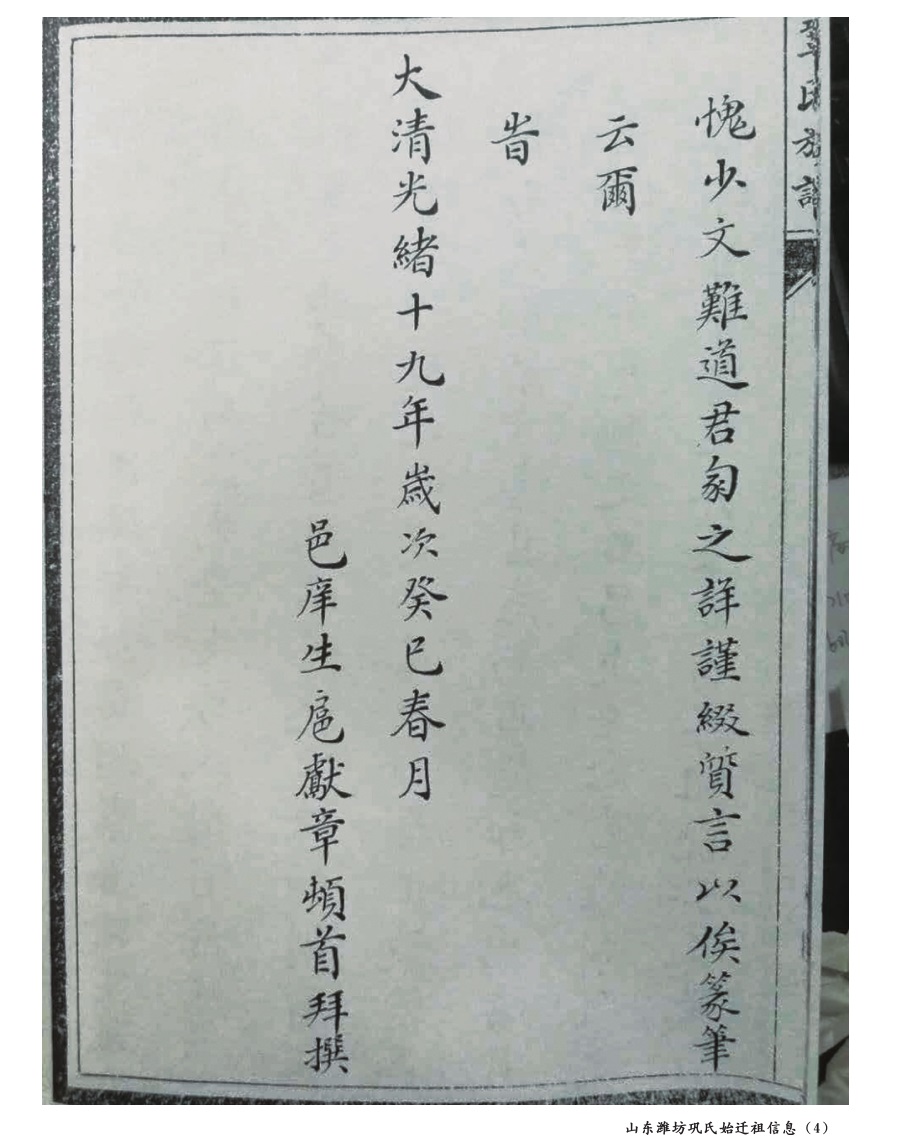 鞏氏族譜
愧少文難道君之詳謹綴質言以俟篆筆
云爾
旹
大清光緒十九年歲次癸巳春月
邑庠生扈獻章頓首拜撰
山东潍坊巩氏始迁祖信息（4）